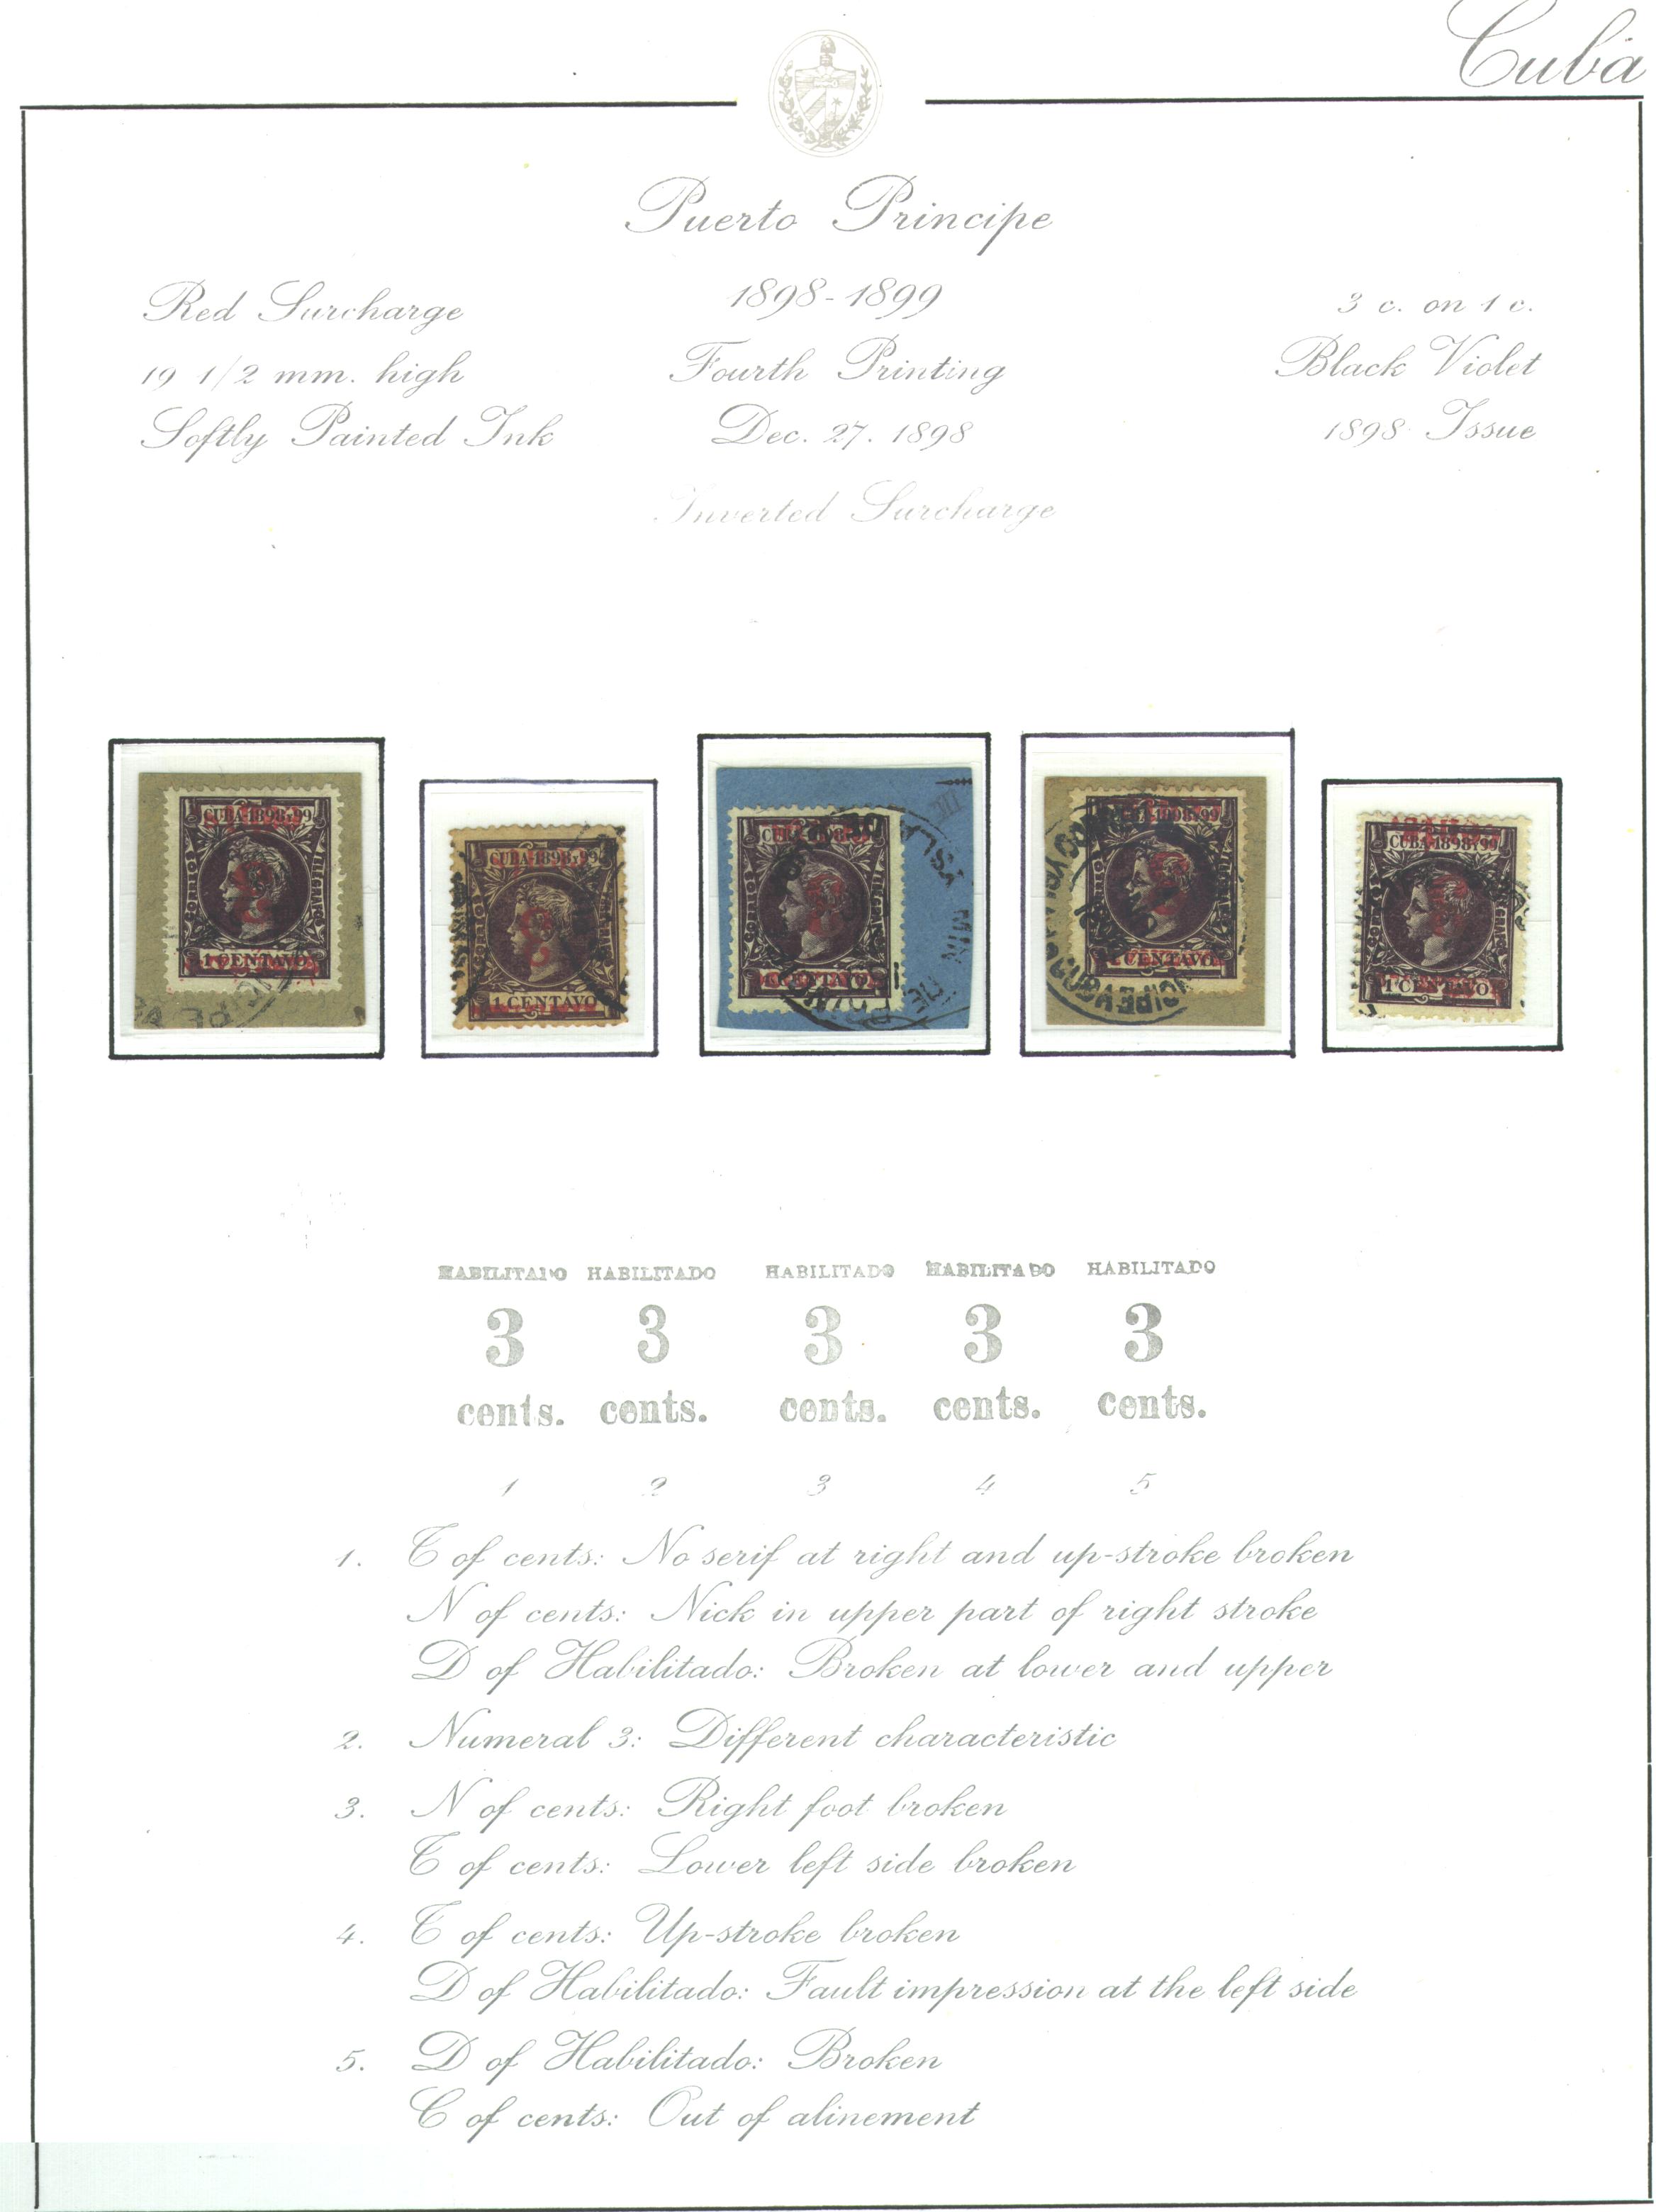 Cuba
Puerto Principe
Red Surcharge
1898-1899
3 c. on 1 c.
19 1/2 mm. high
Fourth Printing
Black Violet
Softly Painted Ink
Dec. 27. 1898
1898 Issue
Inverted Surcharge
CUBA 1898 Y 99
CUBA 1898 Y 99
CUBA 1898 Y 99
CUBA 1898 Y 99
CUBA 1898 Y 99
1 CENTAVO
1 CENTAVO
1 CENTAVO
1 CENTAVO
1 CENTAVO
HABILITADO HABILITADO HABILITADO HABILITADO HABILITADO
3 3 3 3 3
cents. cents. cents. cents. cents.
1 2 3 4 5
1. T of cents: No serif at right and up-stroke broken
N of cents: Nick in upper part of right stroke
D of Habilitado: Broken at lower and upper
2. Numeral 3: Different characteristic
3. N of cents: Right foot broken
T of cents: Lower left side broken
4. T of cents: Up-stroke broken
D of Habilitado: Fault impression at the left side
5. D of Habilitado: Broken
C of cents: Out of alinement